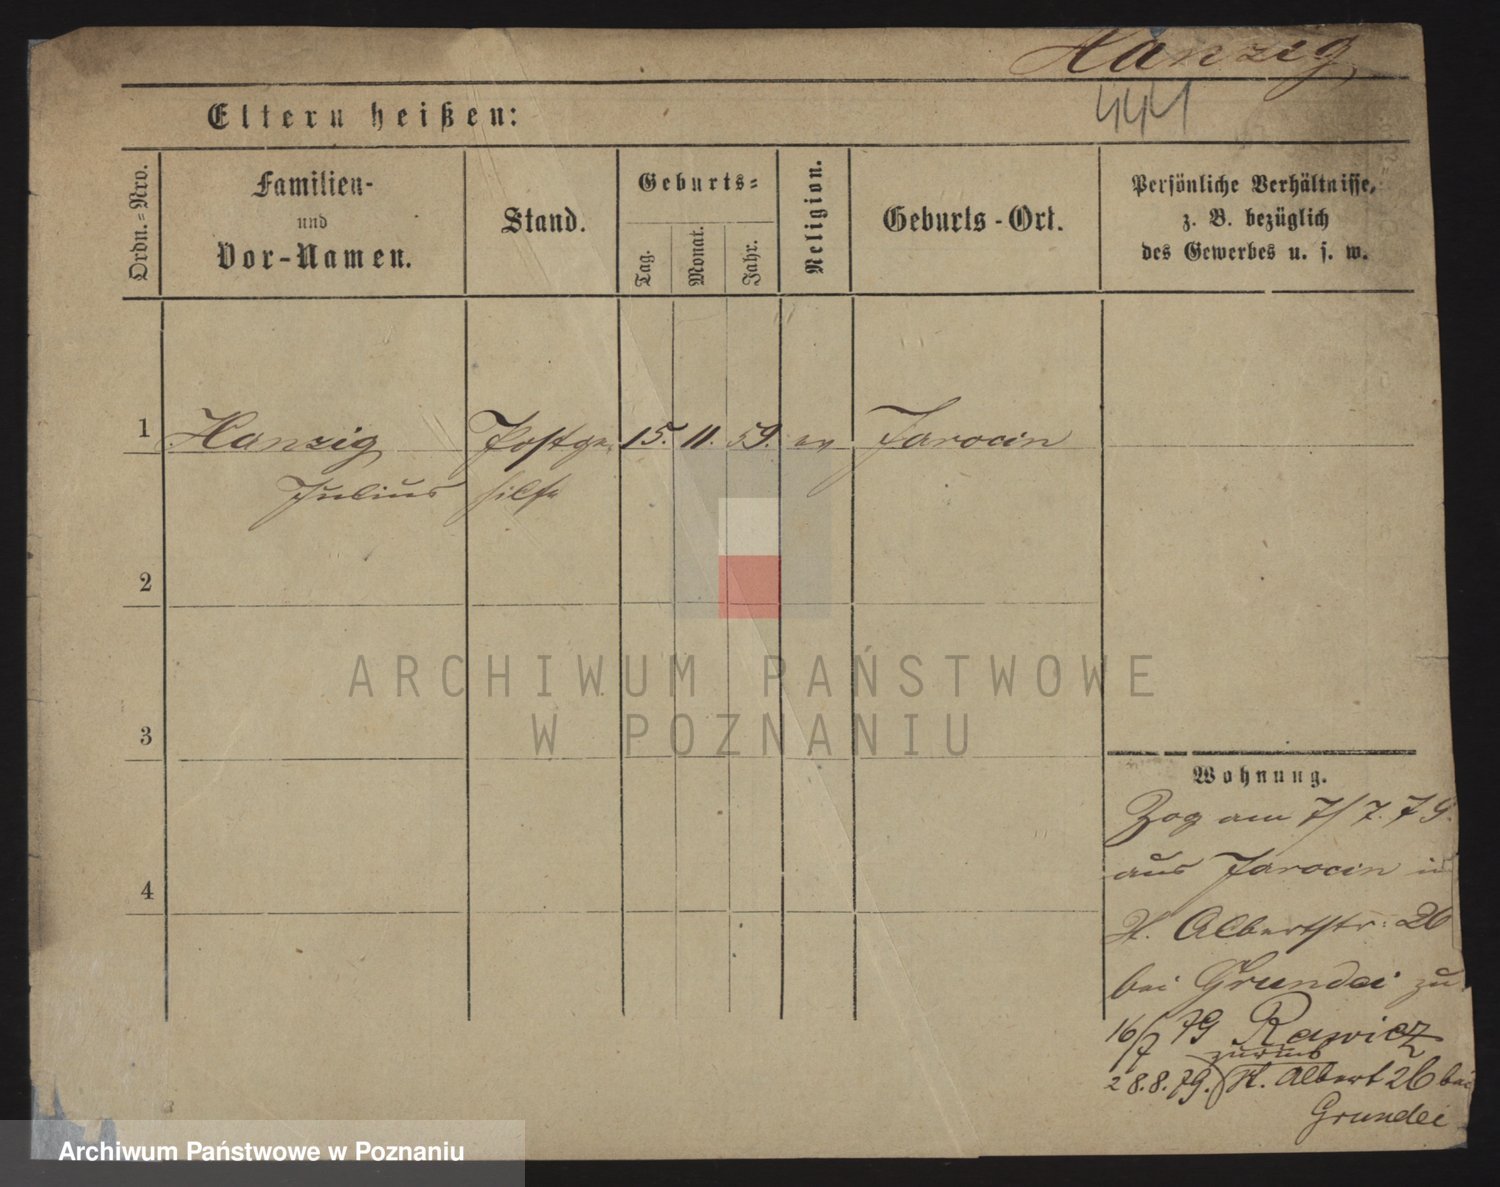 Hanzig
441
Eltern heißen:
Ordn.=Nro.
Familien-
und
Vor-Namen.
Stand.
Geburts=
Tag.
Monat.
Jahr.
Religion.
Geburts-Ort.
Persönliche Verhältnisse,
z. B. bezüglich
des Gewerbes u. s. w.
1 Hanzig Postge- 15. 11. 59. ev Jarocin
Julius hilfe
2
3
4
ARCHIWUM PAŃSTWOWE
W POZNANIU
Wohnung.
Zog am 7/7.79.
aus Jarocin in
H. Albertstr: 26
bei Grundei zu
16/7 79 Rawicz
zurück
28.8.79. H. Albert 26 bei
Grundei
Archiwum Państwowe w Poznaniu